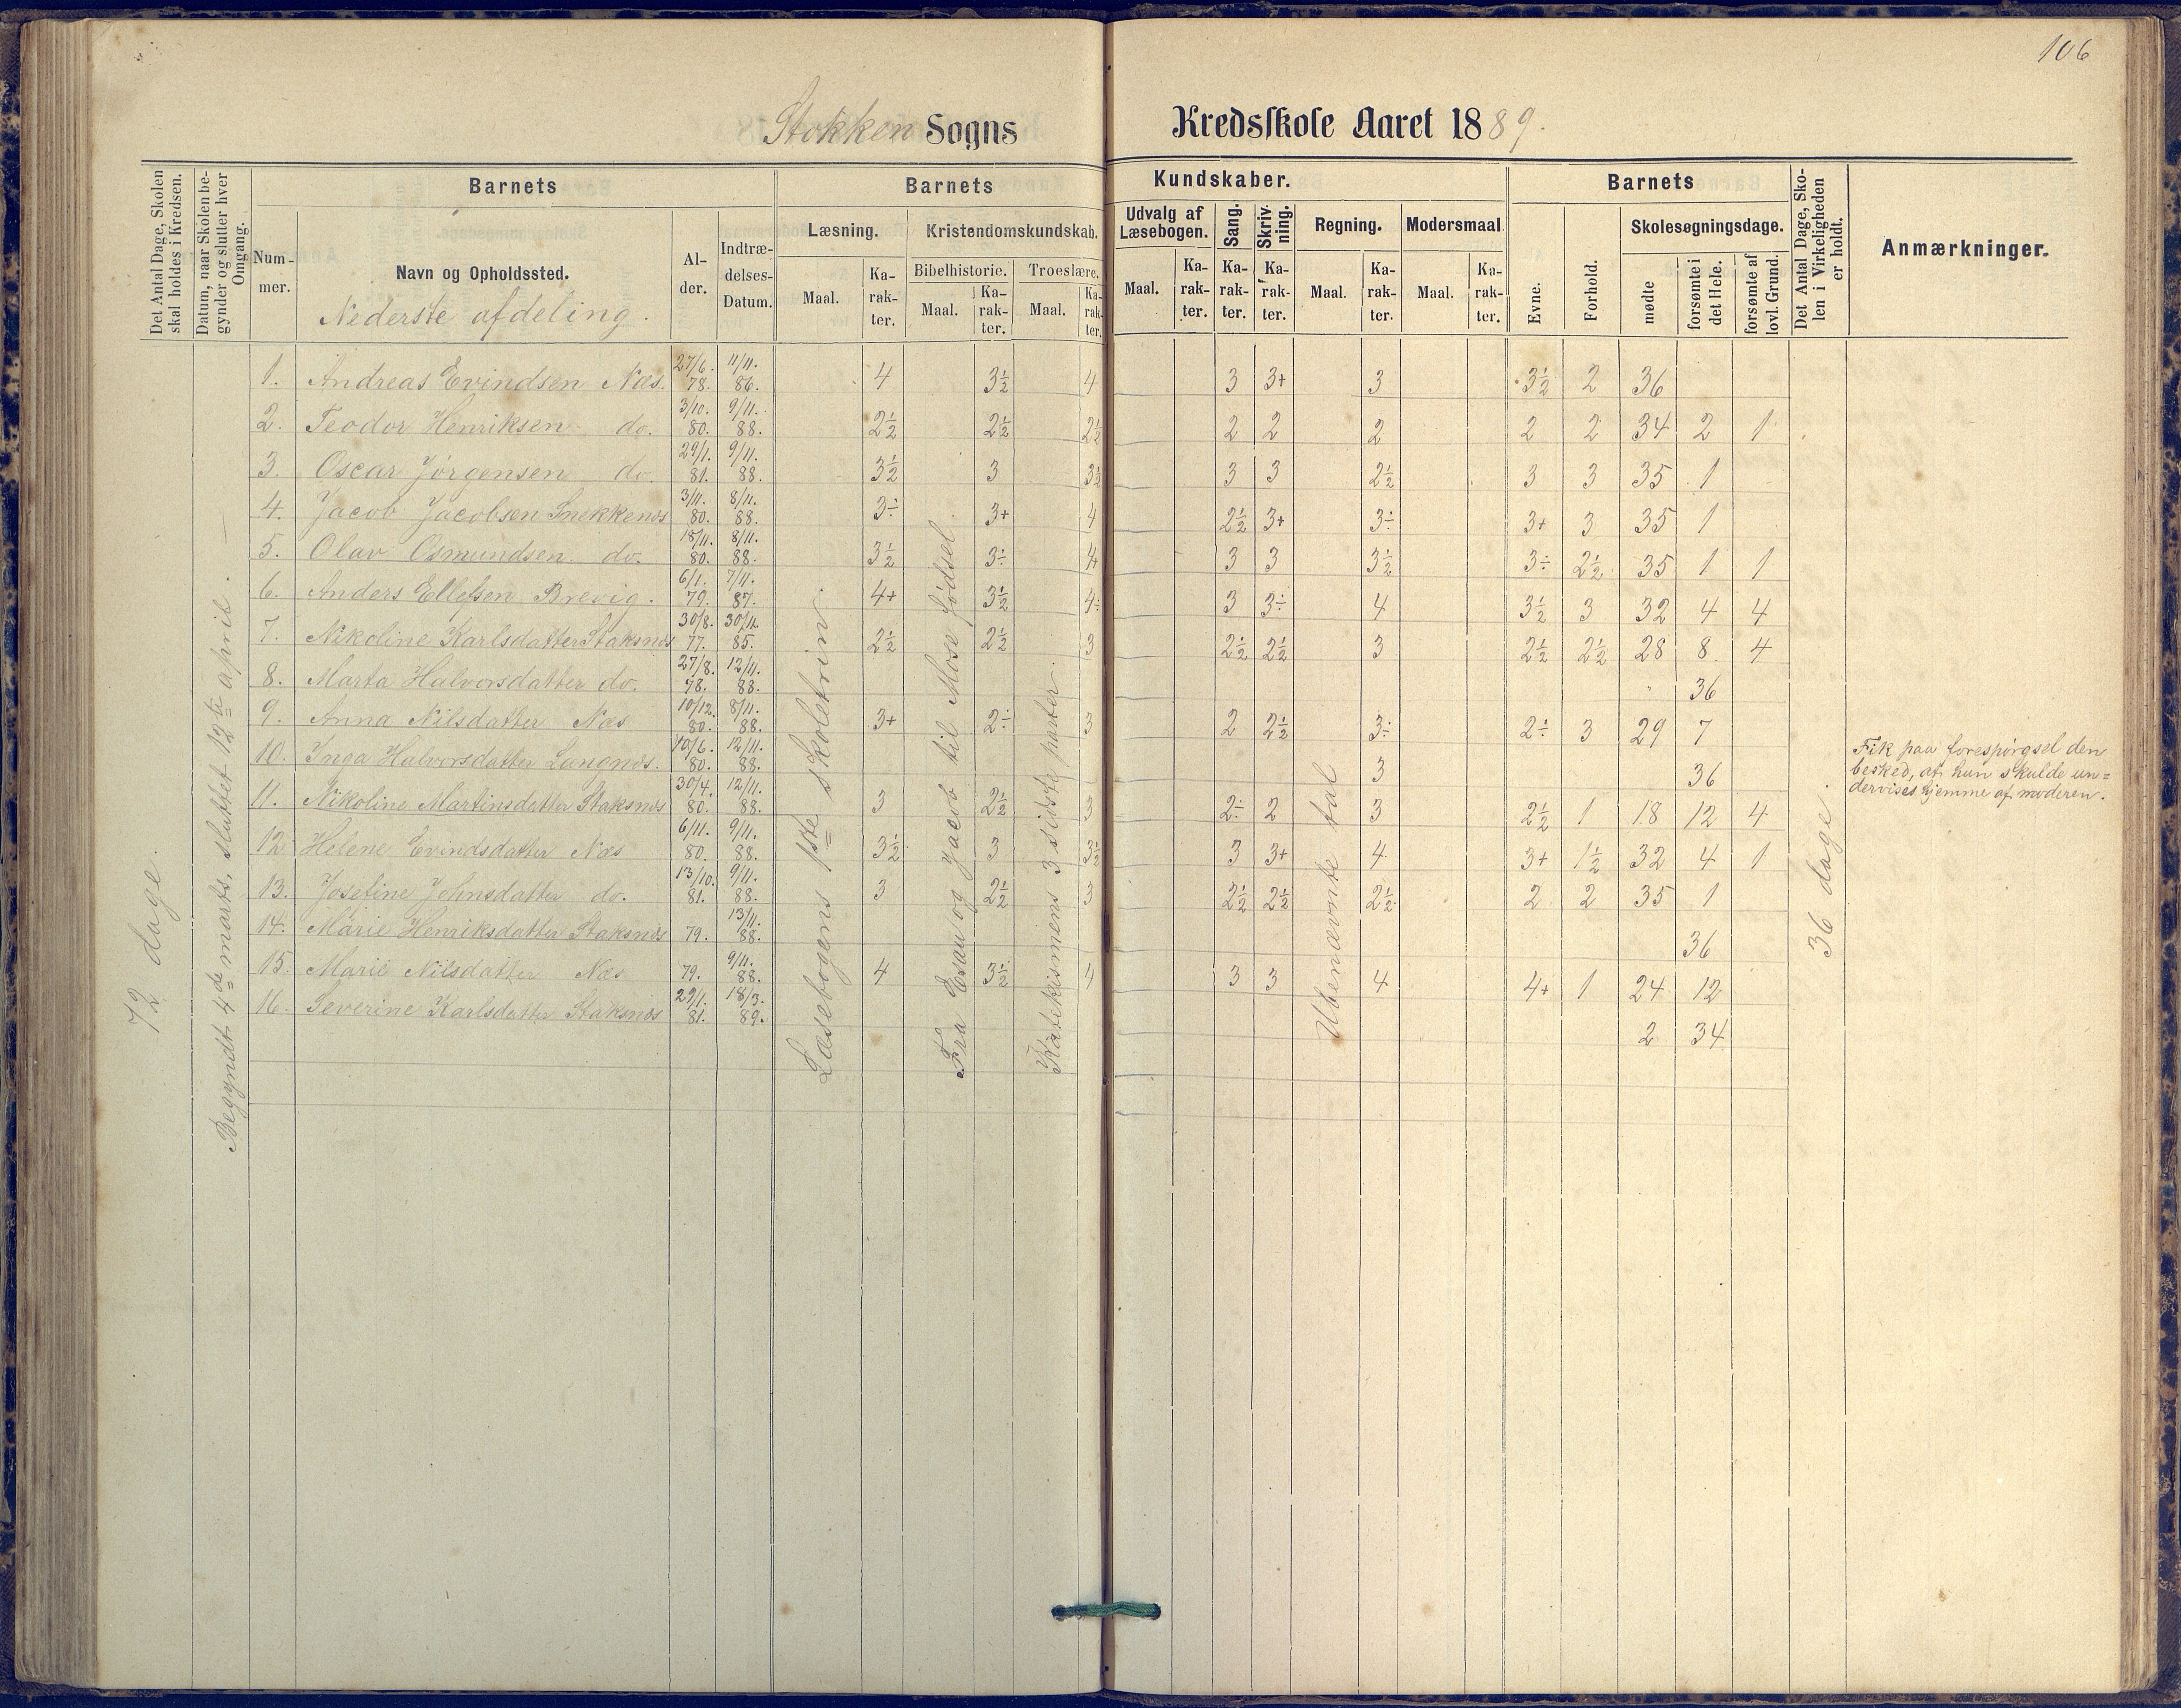 106
Stokken Sogns Kredsskole Aaret 1889.
Det Antal Dage, Skolen skal holdes i Kredsen.
Datum, naar Skolen begynder og slutter hver Omgang.
Barnets
Nummer.
Navn og Opholdssted.
Nederste afdeling.
Alder.
Indtrædelses-Datum.
Barnets Kundskaber.
Læsning.
Maal.
Karakter.
Kristendomskundskab.
Bibelhistorie.
Maal.
Karakter.
Troeslære.
Maal.
Karakter.
Udvalg af Læsebogen.
Maal.
Karakter.
Sang.
Karakter.
Skrivning.
Karakter.
Regning.
Maal.
Karakter.
Modersmaal
Maal.
Karakter.
Barnets
Evne.
Forhold.
Skolesøgningsdage.
mødte
forsømte i det Hele.
forsømte af lovl. Grund.
Det Antal Dage, Skolen i Virkeligheden er holdt.
Anmærkninger.
72 dage.
Begyndt 4de marts, sluttet 12te april.
Læsebogens 1ste skoletrin.
Fra Esau og Jacob til Mose fødsel.
Katekismens 3 sidste parter.
Ubenævnte tal
36 dage.
1. Andreas Evindsen Næs. 27/6. 78. 11/11. 86. 4 3½ 4 3 3+ 3 3½ 2 36
2. Teodor Henriksen do. 3/10. 80. 9/11. 88. 2½ 2½ 2½ 2 2 2 2 2 34 2 1
3. Oscar Jørgensen do. 29/1. 81. 9/11. 88. 3½ 3 3½ 3 3 2½ 3 3 35 1
4. Jacob Jacobsen Snekkenes 3/11. 80. 8/11. 88. 3÷ 3+ 4 2½ 3+ 3÷ 3+ 3 35 1
5. Olav Osmundsen do. 18/11. 80. 8/11. 88. 3½ 3÷ 4 3 3 3½ 3÷ 2½ 35 1 1
6. Anders Ellefsen Brevig. 6/1. 79. 7/11. 87. 4+ 3½ 4÷ 3 3÷ 4 3½ 3 32 4 4
7. Nikoline Karlsdatter Staksnæs 30/8. 77. 30/11. 85. 2½ 2½ 3 2½ 2½ 3 2½ 2½ 28 8 4
8. Marta Halvorsdatter do. 27/8. 78. 12/11. 88. 36
9. Anna Nilsdatter Næs 10/12. 80. 8/11. 88. 3+ 2÷ 3 2 2½ 3÷ 2÷ 3 29 7
10. Inga Halvorsdatter Langnæs. 10/6. 80. 12/11. 88. 3 36 Fik paa forespørgsel den
besked, at hun skulde un=
dervises hjemme af moderen.
11. Nikoline Martinsdatter Staksnæs 30/4. 80. 12/11. 88. 3 2½ 3 2÷ 2 3 2½ 1 18 12 4
12 Helene Evindsdatter Næs 6/11. 80. 9/11. 88. 3½ 3 3½ 3 3+ 4 3+ 1½ 32 4 1
13. Josefine Johnsdatter do. 13/10. 81. 9/11. 88. 3 2½ 3 2½ 2½ 2½ 2 2 35 1
14. Marie Henriksdatter Staksnæs 79. 13/11. 88. 36
15. Marie Nilsdatter Næs 79. 9/11. 88. 4 3½ 4 3 3 4 4+ 1 24 12
16. Severine Karlsdatter Staksnæs 29/1. 81. 18/3. 89. 2 34